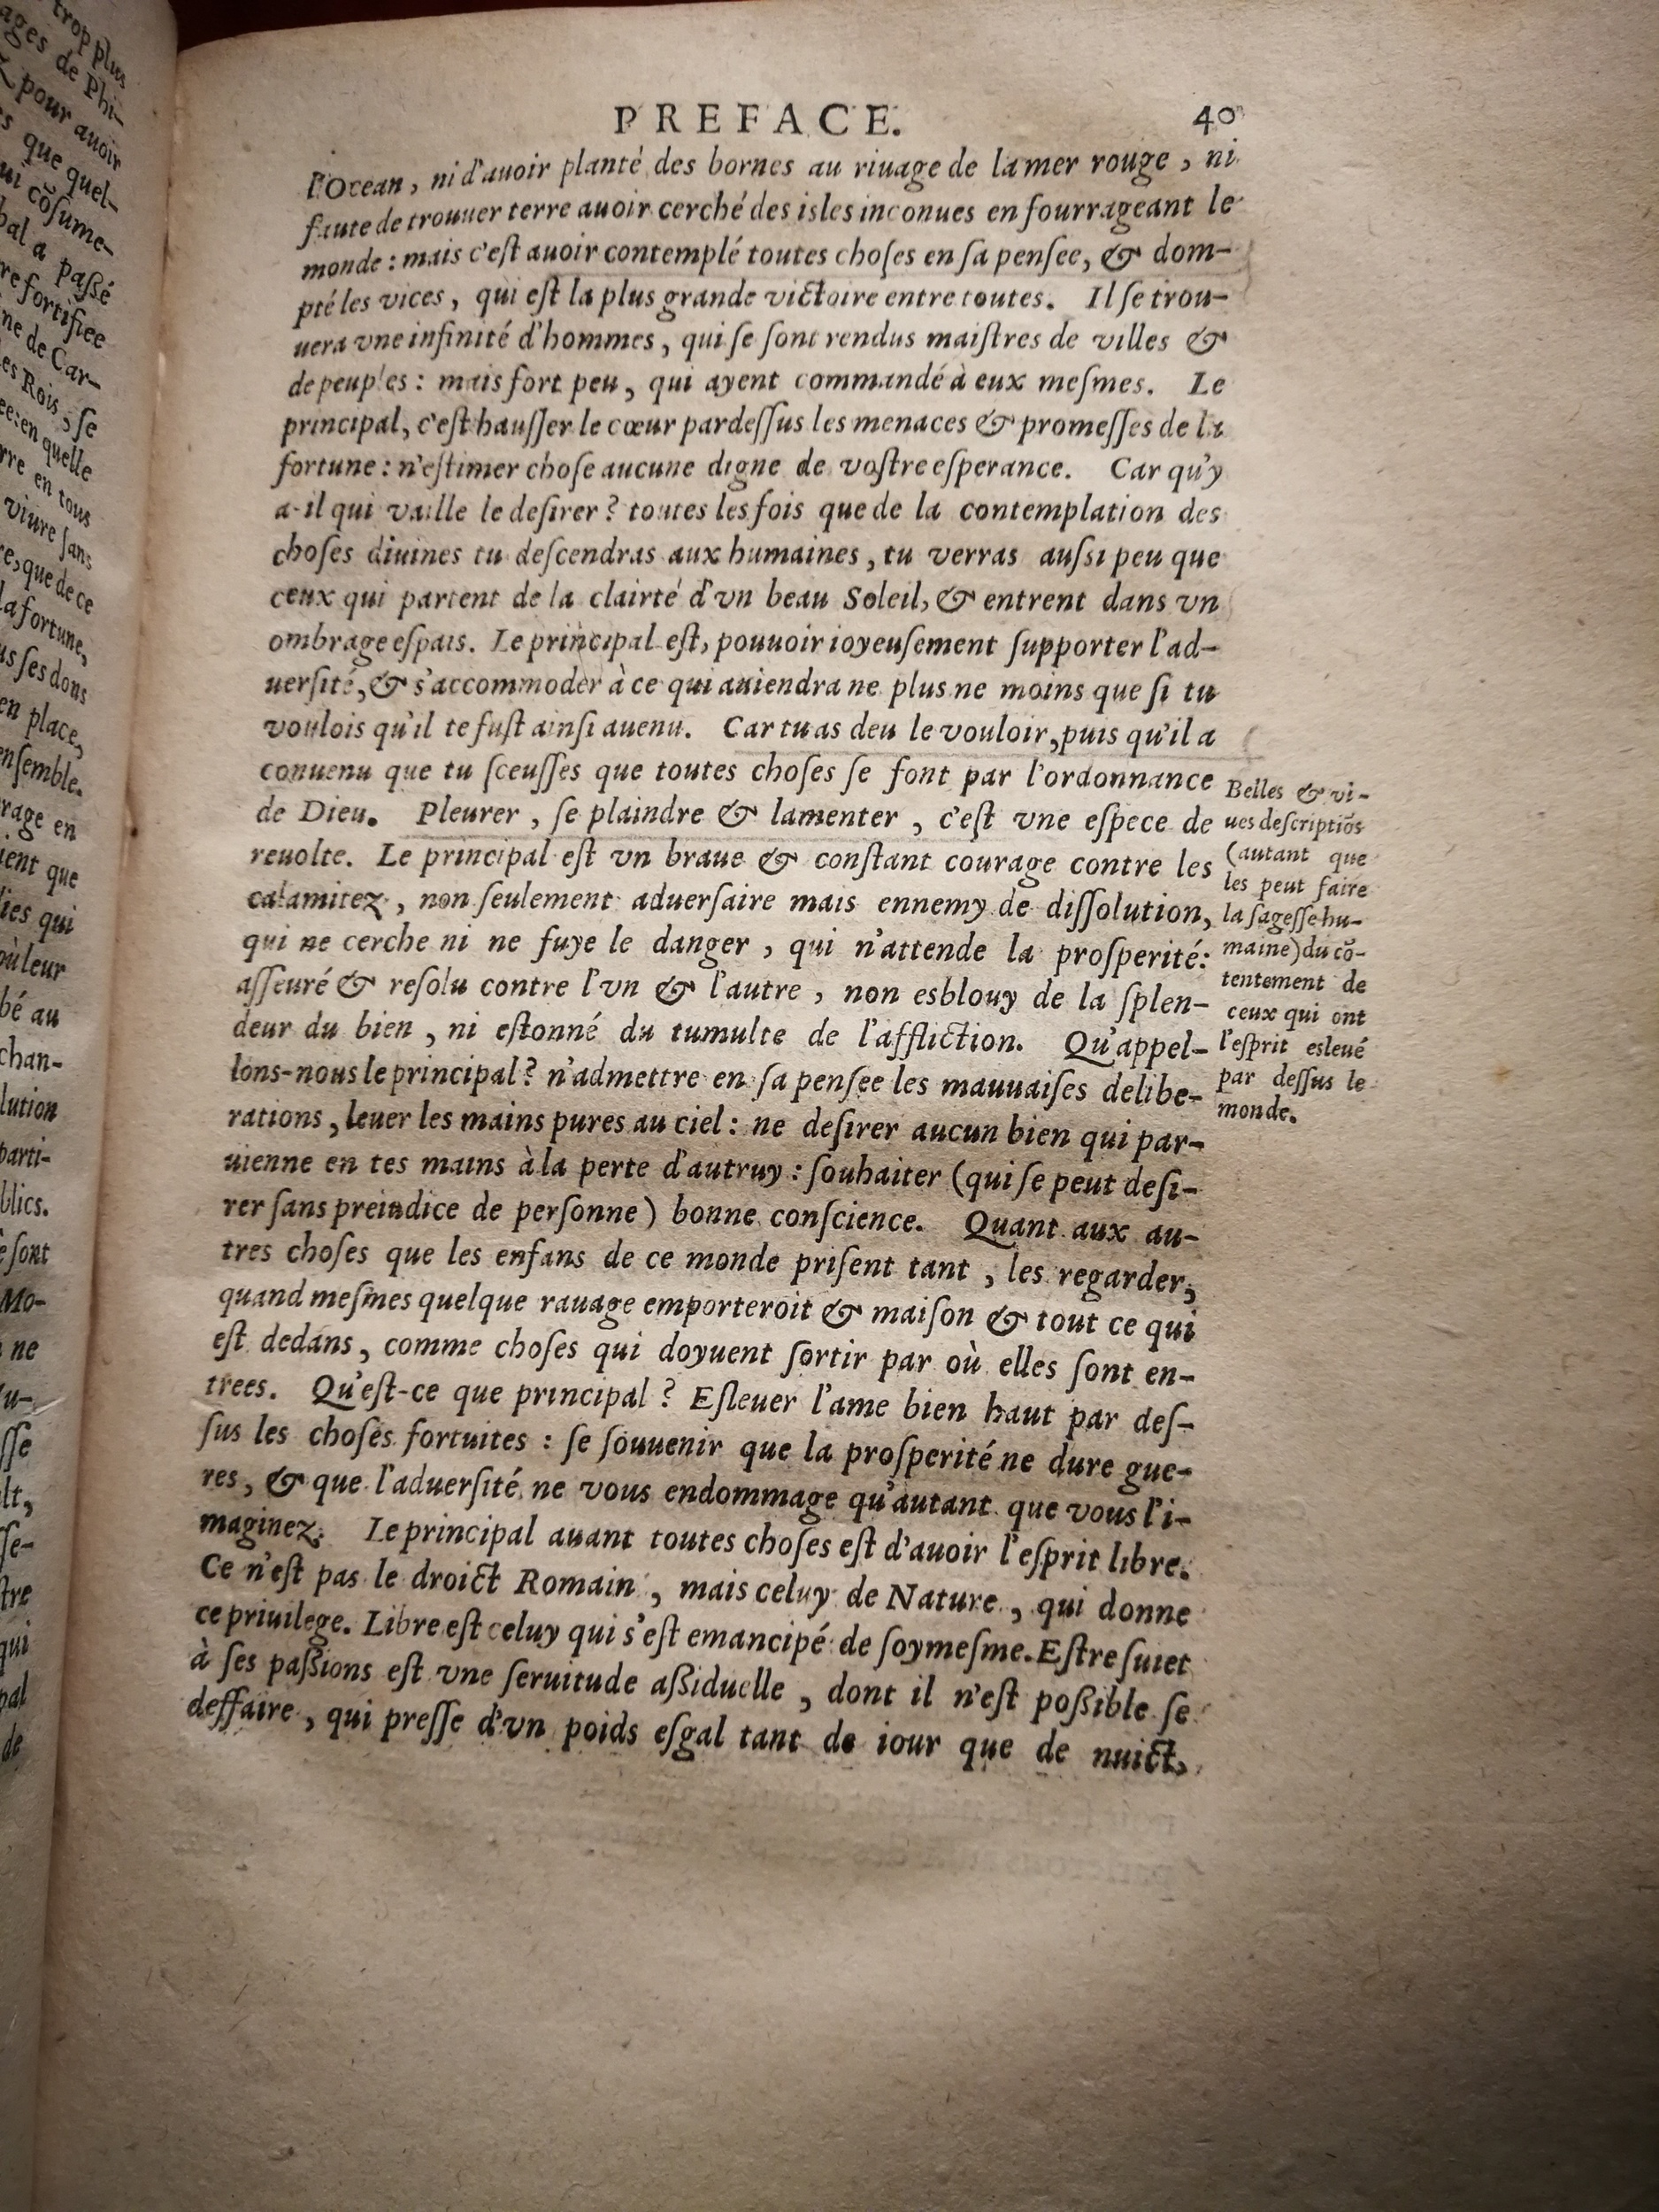 trop plus
ages de Phi-
pour auoir
que quel-
cõſume-
bal a paßé
re fortifiee
ne de Car-
es Rois, ſe
ee: en quelle
rre en tous
viure ſans
re, que de ce
la fortune,
us ſes dons
en place,
enſemble.
rage en
ient que
lies qui
bé au
chan-
lution
parti-
blics.
ſont
Mo-
ne
qui
de
PREFACE. 40
l'Ocean, ni d'auoir planté des bornes au riuage de la mer rouge, ni
faute de trouuer terre auoir cerché des isles inconues en fourrageant le
monde: mais c'eſt auoir contemplé toutes choſes en ſa penſee, & dom-
pté les vices, qui eſt la plus grande victoire entre toutes. Il ſe trou-
uera vne infinité d'hommes, qui ſe ſont rendus maiſtres de villes &
de peuples: mais fort peu, qui ayent commandé à eux meſmes. Le
principal, c'eſt hauſſer le cœur pardeſſus les menaces & promeſſes de la
fortune: n'eſtimer choſe aucune digne de voſtre eſperance. Car qu'y
a-il qui vaille le deſirer? toutes les fois que de la contemplation des
choſes diuines tu deſcendras aux humaines, tu verras auſsi peu que
ceux qui partent de la clairté d'vn beau Soleil, & entrent dans vn
ombrage eſpais. Le principal eſt, pouuoir ioyeuſement ſupporter l'ad-
uerſité, & s'accommoder à ce qui auiendra ne plus ne moins que ſi tu
voulois qu'il te fuſt ainſi auenu. Car tu as deu le vouloir, puis qu'il a
conuenu que tu ſceuſſes que toutes choſes ſe font par l'ordonnance
de Dieu. Pleurer, ſe plaindre & lamenter, c'eſt vne eſpece de
reuolte. Le principal eſt vn braue & conſtant courage contre les
calamitez, non ſeulement aduerſaire mais ennemy de diſſolution,
qui ne cerche ni ne fuye le danger, qui n'attende la proſperité:
aſſeuré & reſolu contre l'vn & l'autre, non esblouy de la ſplen-
deur du bien, ni eſtonné du tumulte de l'affliction. Qu'appel-
lons-nous le principal? n'admettre en ſa penſee les mauuaiſes delibe-
rations, leuer les mains pures au ciel: ne deſirer aucun bien qui par-
uienne en tes mains à la perte d'autruy: ſouhaiter (qui ſe peut deſi-
rer ſans preiudice de perſonne) bonne conſcience. Quant aux au-
tres choſes que les enfans de ce monde priſent tant, les regarder,
quand meſmes quelque rauage emporteroit & maiſon & tout ce qui
eſt dedans, comme choſes qui doyuent ſortir par où elles ſont en-
trees. Qu'eſt-ce que principal? Eſleuer l'ame bien haut par deſ-
ſus les choſes fortuites: ſe ſouuenir que la proſperité ne dure gue-
res, & que l'aduerſité ne vous endommage qu'autant que vous l'i-
maginez. Le principal auant toutes choſes eſt d'auoir l'eſprit libre.
Ce n'eſt pas le droict Romain, mais celuy de Nature, qui donne
ce priuilege. Libre eſt celuy qui s'eſt emancipé de ſoymeſme. Eſtre ſuiet
à ſes paßions eſt vne ſeruitude aßiduelle, dont il n'eſt poßible ſe
deffaire, qui preſſe d'vn poids eſgal tant de iour que de nuict,
Belles & vi-
ues deſcriptiõs
(autant que
les peut faire
la ſageſſe hu-
maine) du cõ-
tentement de
ceux qui ont
l'eſprit esleué
par deſſus le
monde.